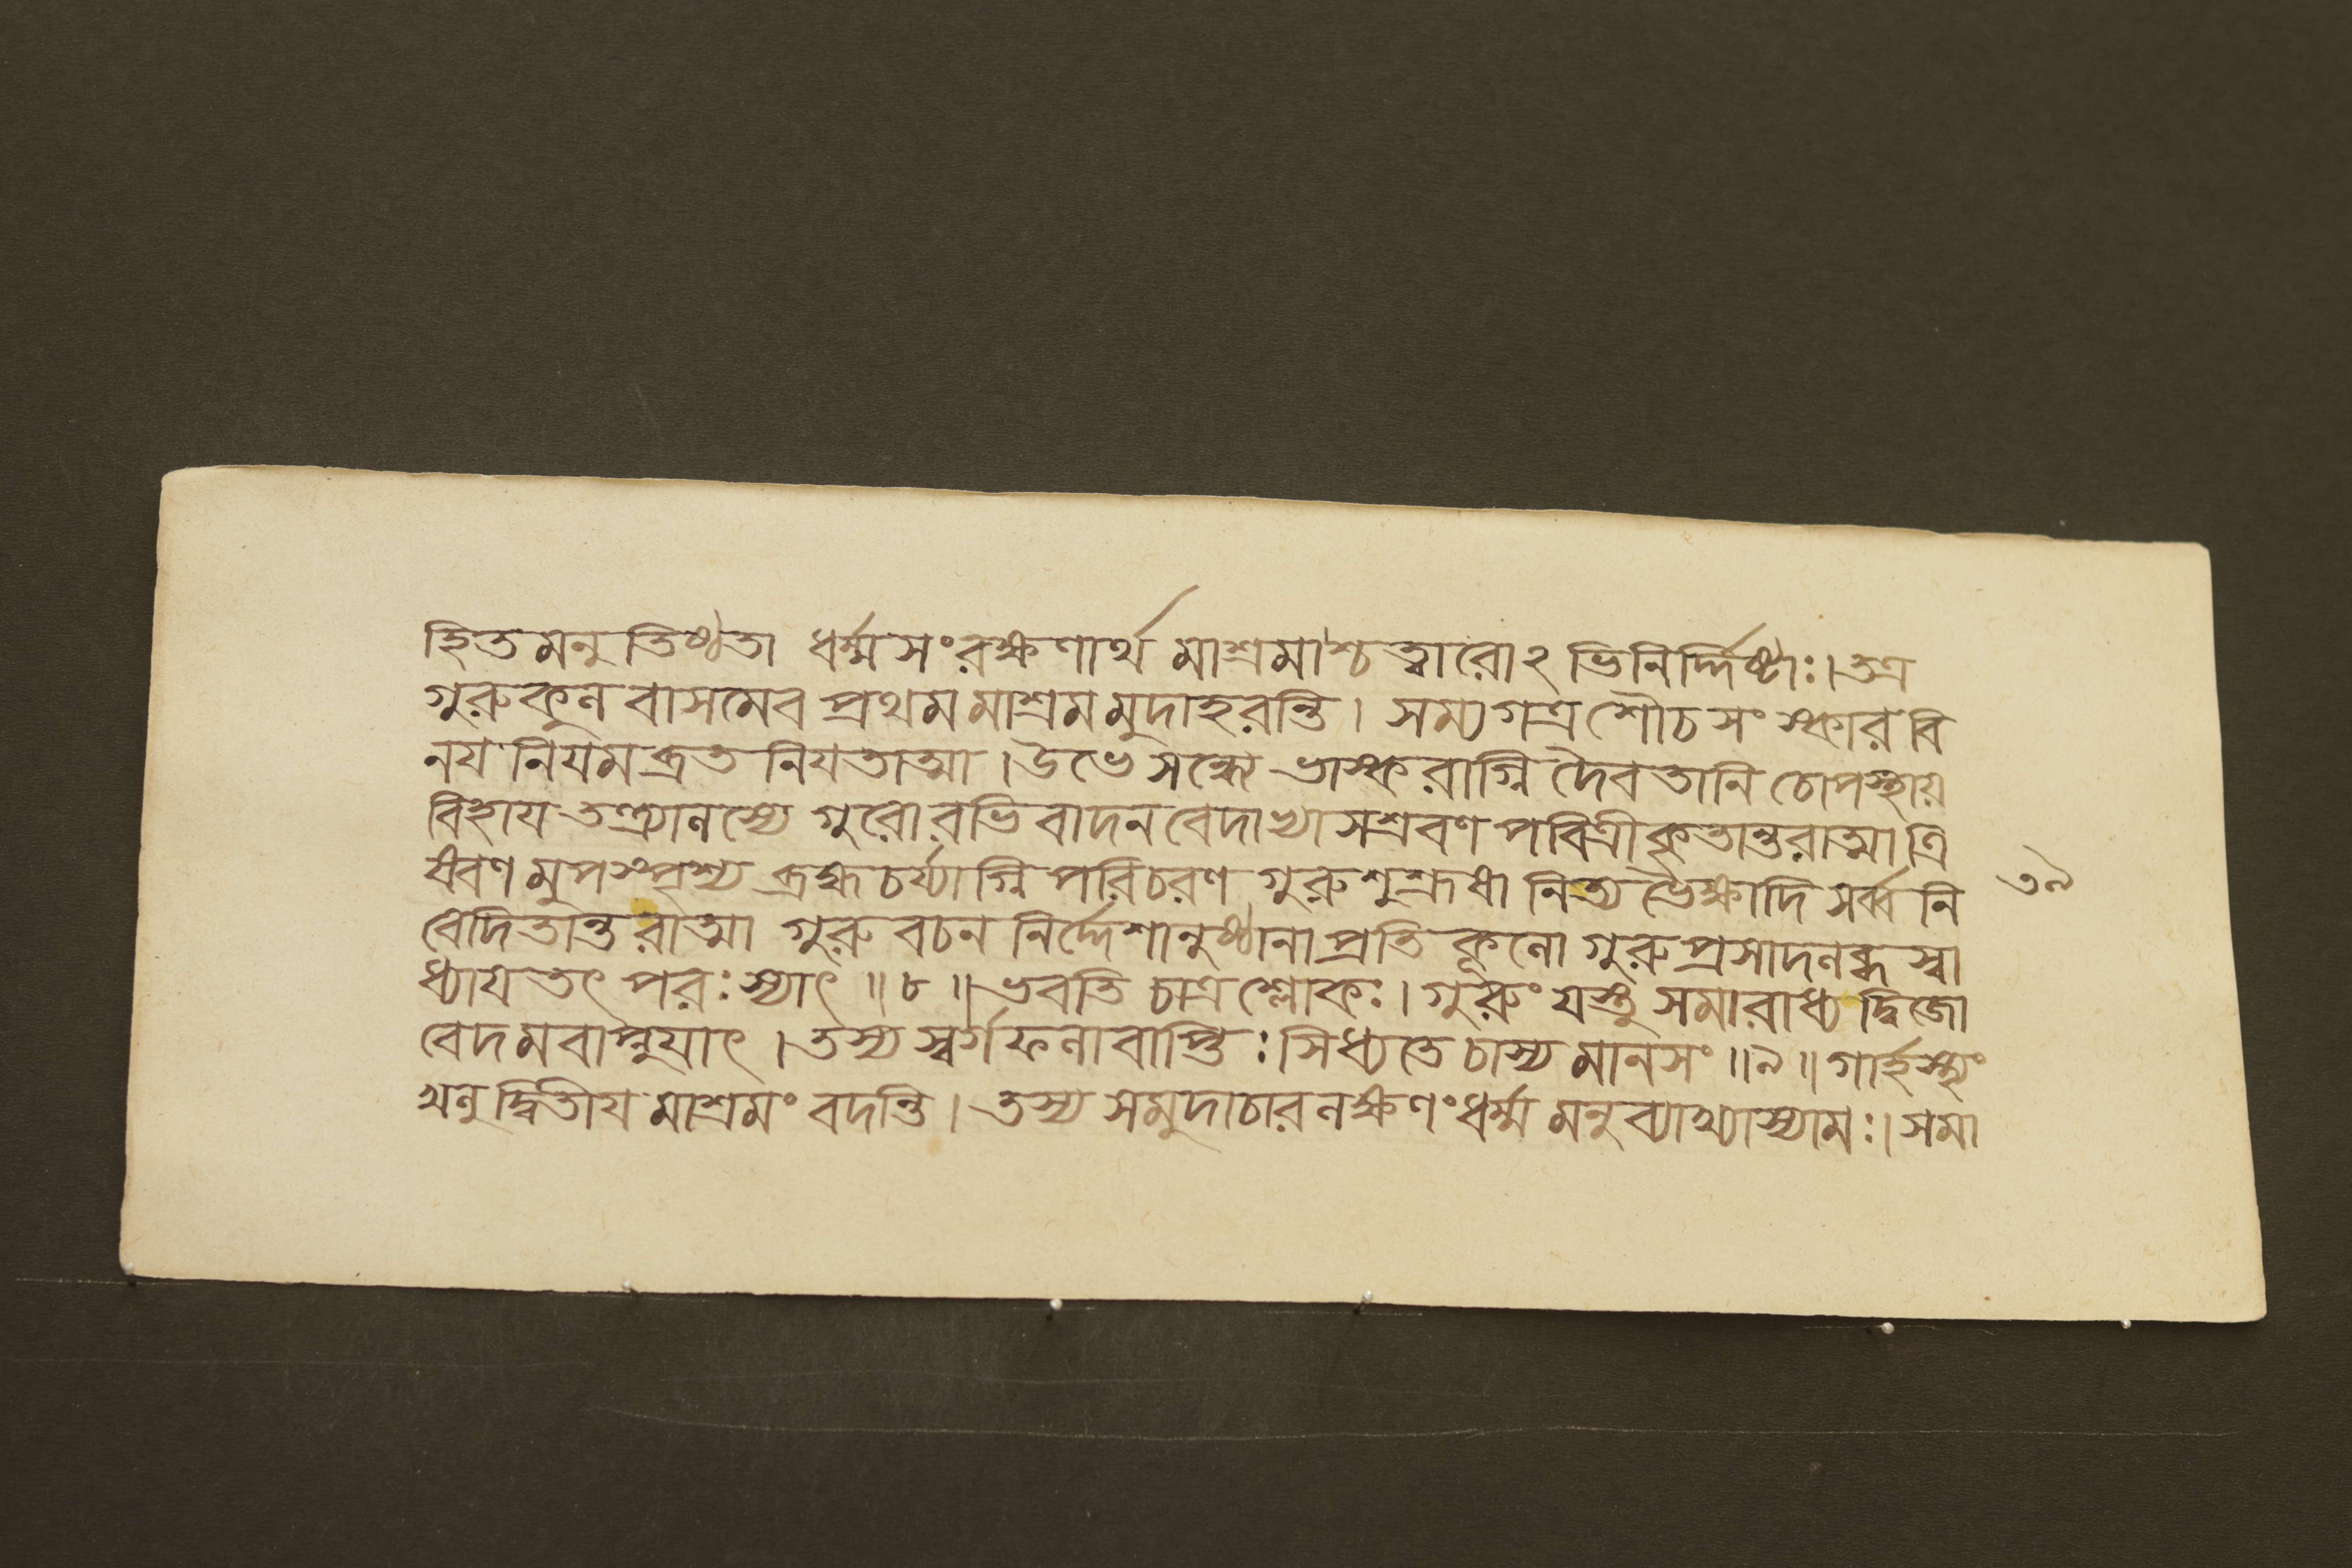 হিতমনুতিষ্ঠতা ধর্ম্মসংরক্ষণার্থমাশ্রমাশ্চত্বারোঽভিনির্দ্দিষ্টাঃ।তত্র
গুরুকুলবাসমেব প্রথমমাশ্রমমুদাহরন্তি। সম্যগত্র শৌচসংস্কারবি
নয়নিয়মব্রতনিয়তাত্মা।উভে সন্ধ্যে ভাস্করাগ্নিদৈবতানি চোপস্থায়
বিহায় তন্দ্র্যালস্যে গুরোরভিবাদনবেদাভ্যাসশ্রবণপবিত্রীকৃতান্তরাত্মা ত্রি
ষবণমুপস্পৃশ্য ব্রহ্মচর্য্যাগ্নিপরিচরণগুরুশুশ্রূষা নিত্য ভৈক্ষাদি সর্ব্বনি
বেদিতান্তরাত্মা গুরুবচননির্দ্দেশানুষ্ঠানাপ্রতিকূলো গুরুপ্রসাদলব্ধস্বা
ধ্যায়তৎপরঃ স্যাৎ॥৮॥ভবতি চাত্র শ্লোকঃ। গুরুং যস্তু সমারাধ্য দ্বিজো
বেদমবাপ্নুয়াৎ।তস্য স্বর্গফলাবাপ্তিঃ সিধ্যতে চাস্য মানসং॥৯॥গার্হস্থ্যং
খলু দ্বিতীয়মাশ্রমং বদন্তি। তস্য সমুদাচারলক্ষণং ধর্ম্মমনুব্যাখ্যাস্যামঃ।সমা
৩৯